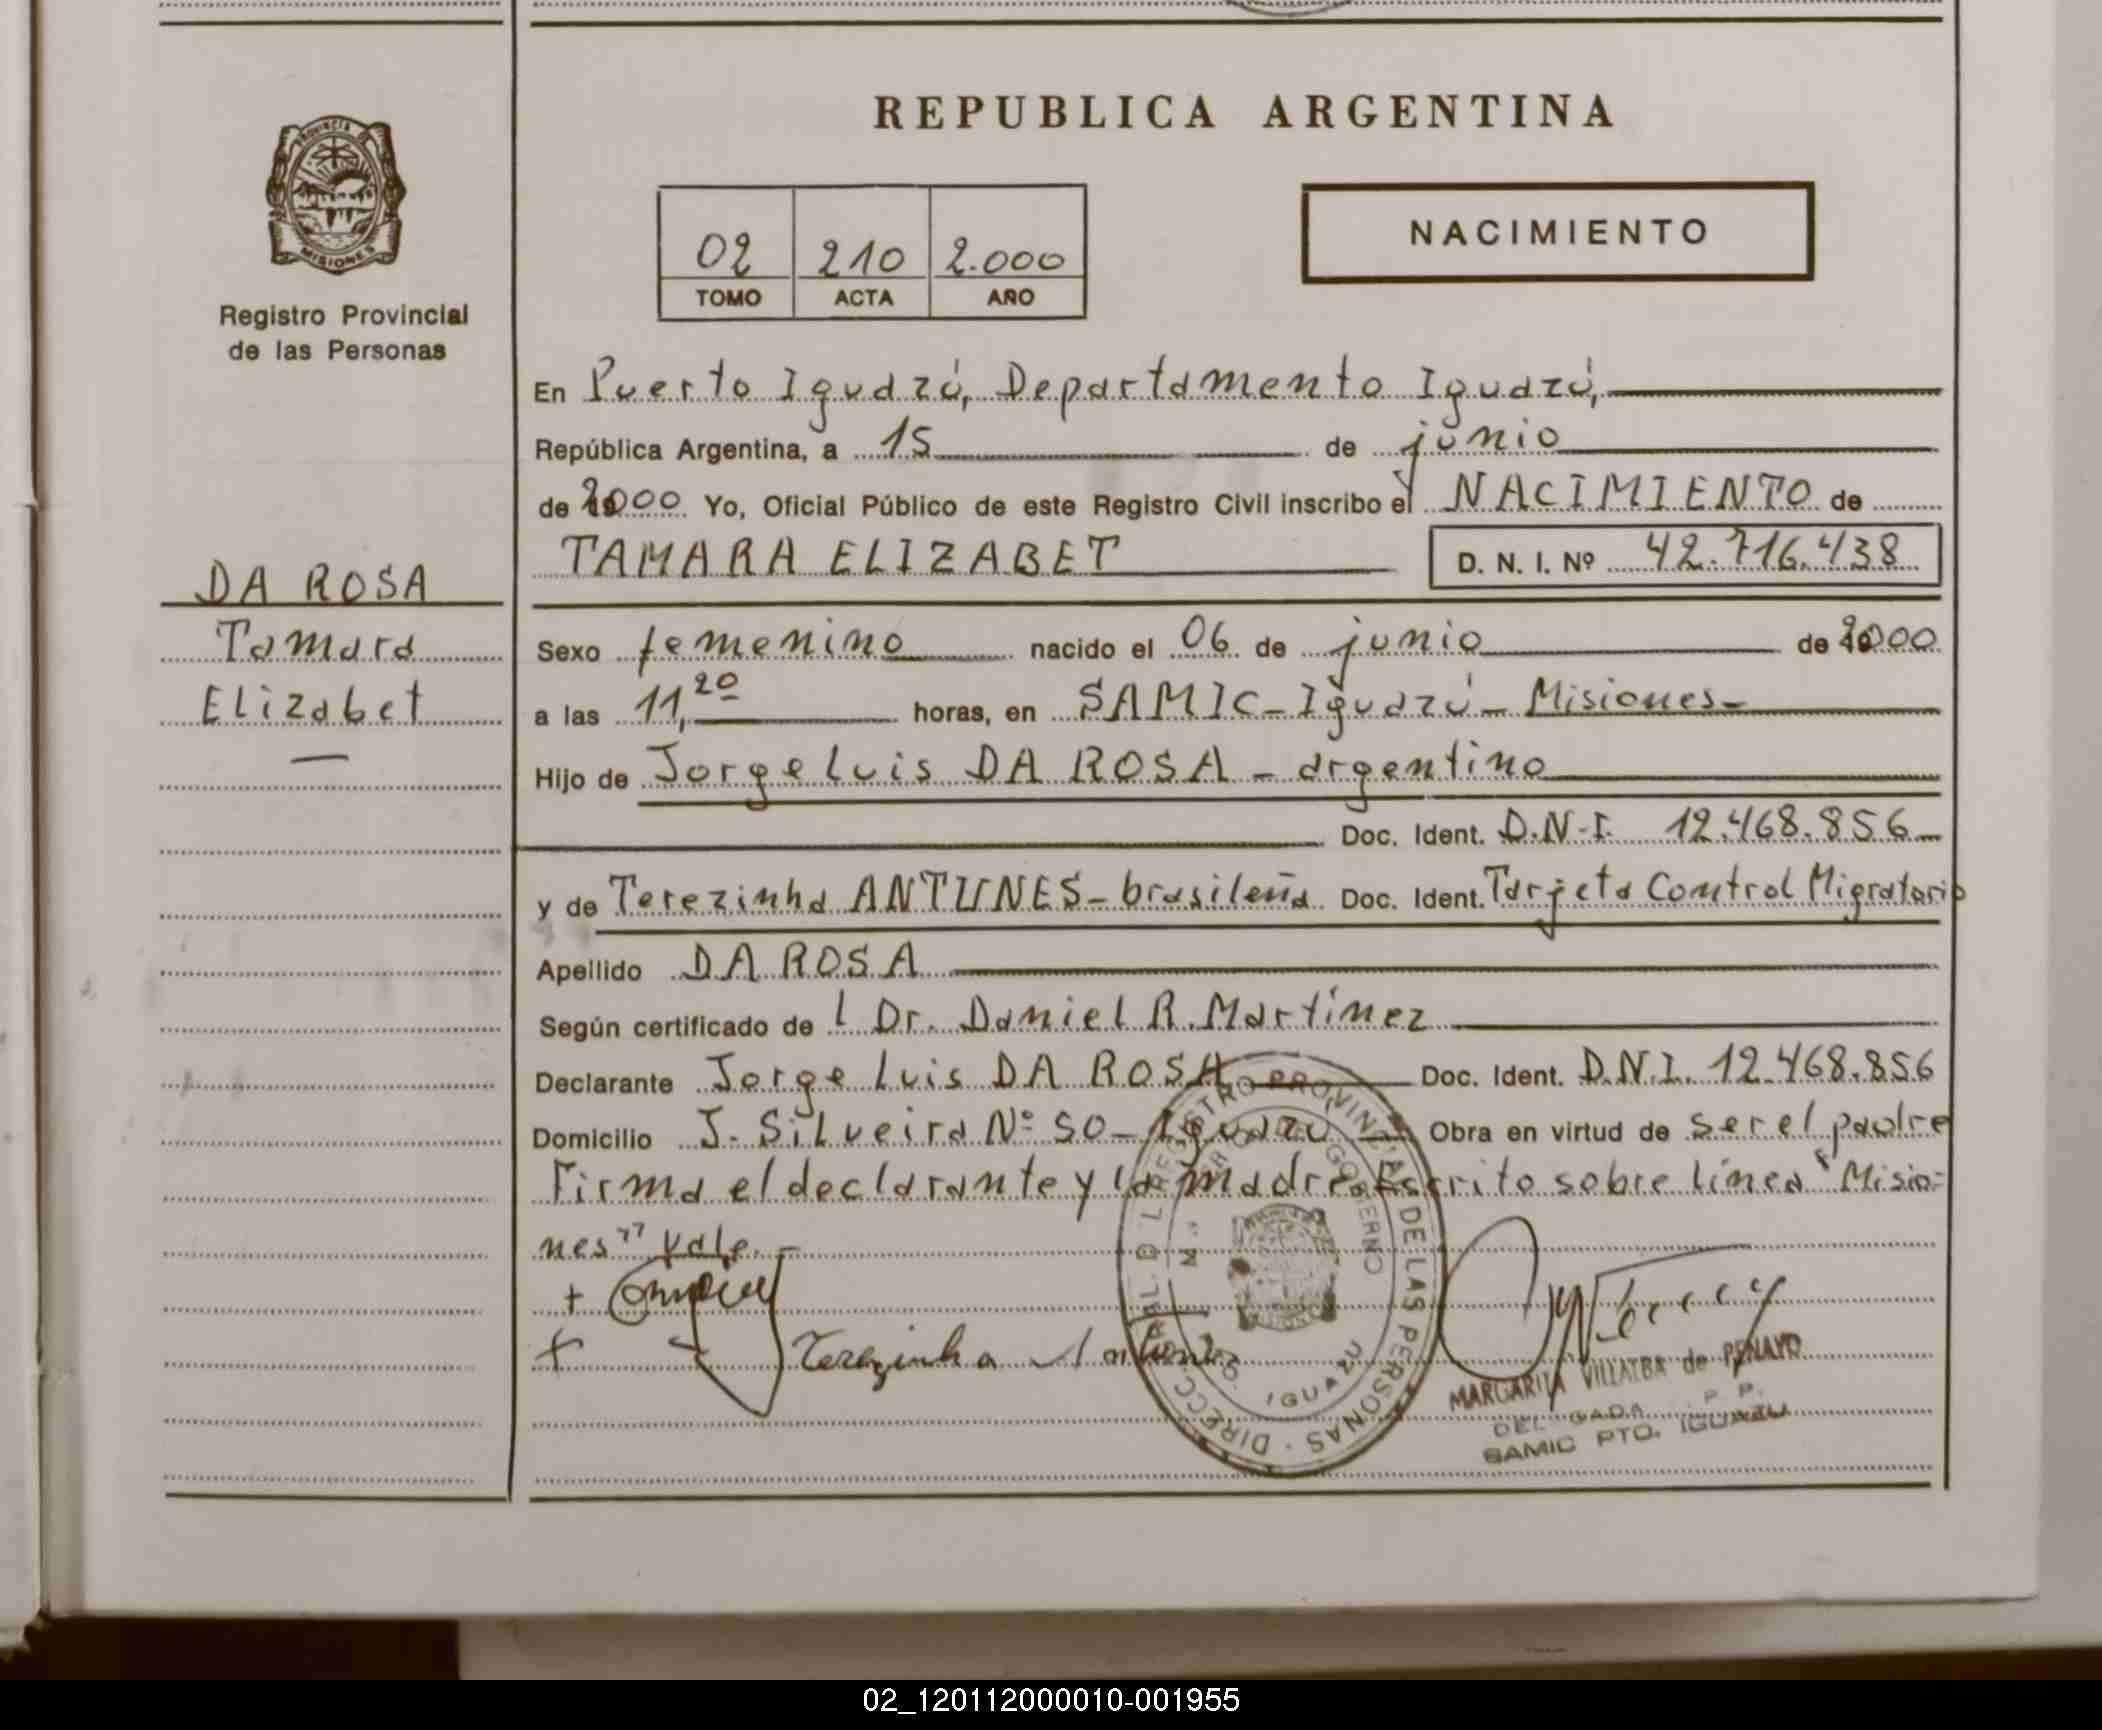 REPUBLICA ARGENTINA
PROVINCIA DE
MISIONES
Registro Provincial
de las Personas
02 210 2.000
TOMO ACTA AÑO
NACIMIENTO
En Puerto Iguazú, Departamento Iguazú,
República Argentina, a 15 de junio
de 2000 Yo, Oficial Público de este Registro Civil inscribo el NACIMIENTO de
TAMARA ELIZABET D. N. I. Nº 42.716.438
DA ROSA
Tamara
Elizabet
Sexo femenino nacido el 06 de junio de 2000
a las 11,20 horas, en SAMIC - Iguazú - Misiones -
Hijo de Jorge Luis DA ROSA - argentino
Doc. Ident. D.N.I. 12.468.856
y de Terezinha ANTUNES - brasileña Doc. Ident. Tarjeta Control Migratorio
Apellido DA ROSA
Según certificado de l Dr. Daniel R. Martínez
Declarante Jorge Luis DA ROSA Doc. Ident. D.N.I. 12.468.856
Domicilio J. Silveira Nº 50 - Iguazú Obra en virtud de ser el padre
Firma el declarante y la madre. Escrito sobre línea "Misio=
nes" Vale. -
Terezinha
REGISTRO PROVINCIAL DE LAS PERSONAS · DIRECC
GOBIERNO
IGUAZU
MARGARITA VILLALBA de PENAYO
SAMIC PTO. IGUAZU
02_120112000010-001955